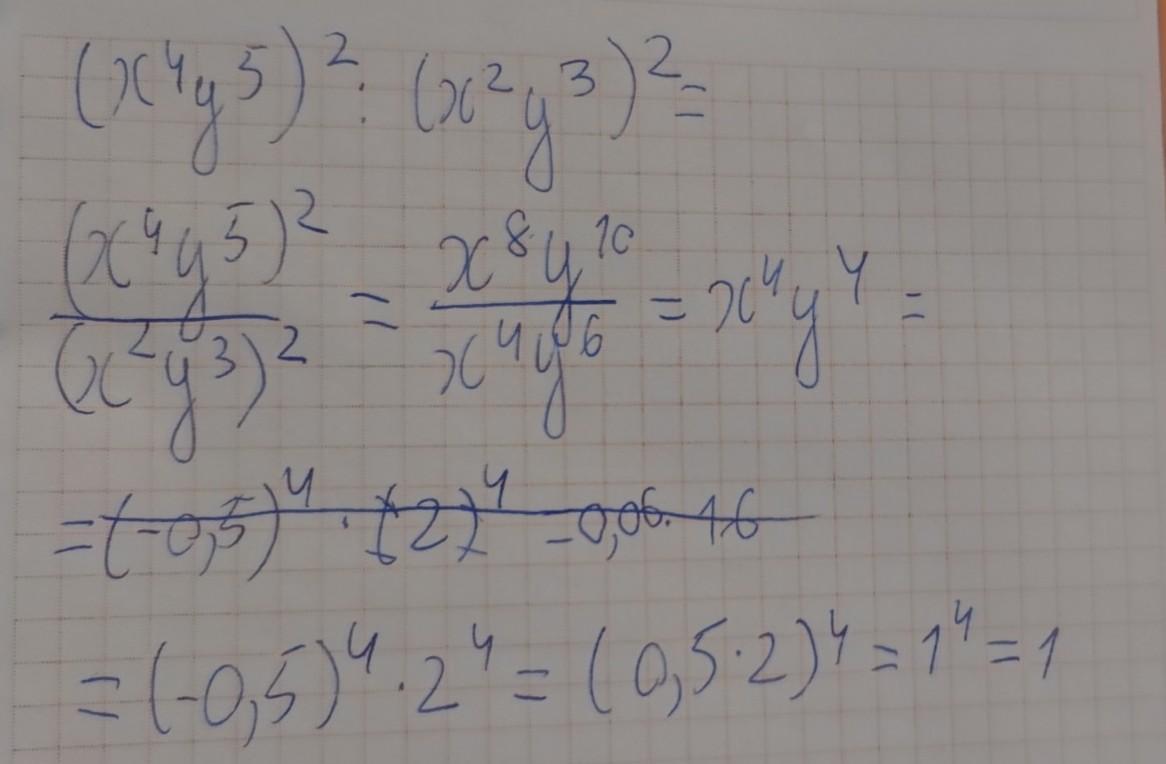 (x⁴y⁵)² : (x²y³)² =
(x⁴y⁵)² / (x²y³)² = x⁸y¹⁰ / x⁴y⁶ = x⁴y⁴ =
= (-0,5)⁴ · (2)⁴ = 0,06 · 16
= (-0,5)⁴ · 2⁴ = (0,5 · 2)⁴ = 1⁴ = 1